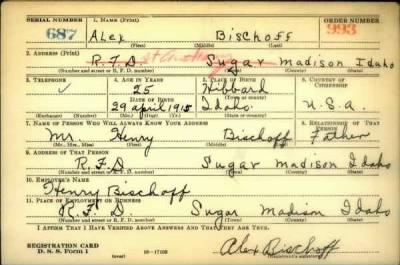 SERIAL NUMBER 1. NAME (Print) ORDER NUMBER
687 Alex Bischoff 993
(First) (Middle) (Last)
2. ADDRESS (Print)
R.F.D. St Anthony Sugar Madison Idaho
(Number and street or R. F. D. number) (Town) (County) (State)
3. TELEPHONE 4. AGE IN YEARS 5. PLACE OF BIRTH 6. COUNTRY OF CITIZENSHIP
✓ 25 Hibbard
DATE OF BIRTH
29 April 1915 Idaho. U.S.A.
(Exchange) (Number) (Mo.) (Day) (Yr.) (State or country)
7. NAME OF PERSON WHO WILL ALWAYS KNOW YOUR ADDRESS 8. RELATIONSHIP OF THAT PERSON
Mr. Henry Bischoff Father
(Mr., Mrs., Miss) (First) (Middle) (Last)
9. ADDRESS OF THAT PERSON
R.F.D Sugar Madison Idaho
(Number and street or R. F. D. number) (Town) (County) (State)
10. EMPLOYER'S NAME
Henry Bischoff
11. PLACE OF EMPLOYMENT OR BUSINESS
R.F.D. Sugar Madison Idaho
(Number and street or R. F. D. number) (Town) (County) (State)
I AFFIRM THAT I HAVE VERIFIED ABOVE ANSWERS AND THAT THEY ARE TRUE.
REGISTRATION CARD
D. S. S. Form 1 16-17105 Alex Bischoff
(Registrant's signature)